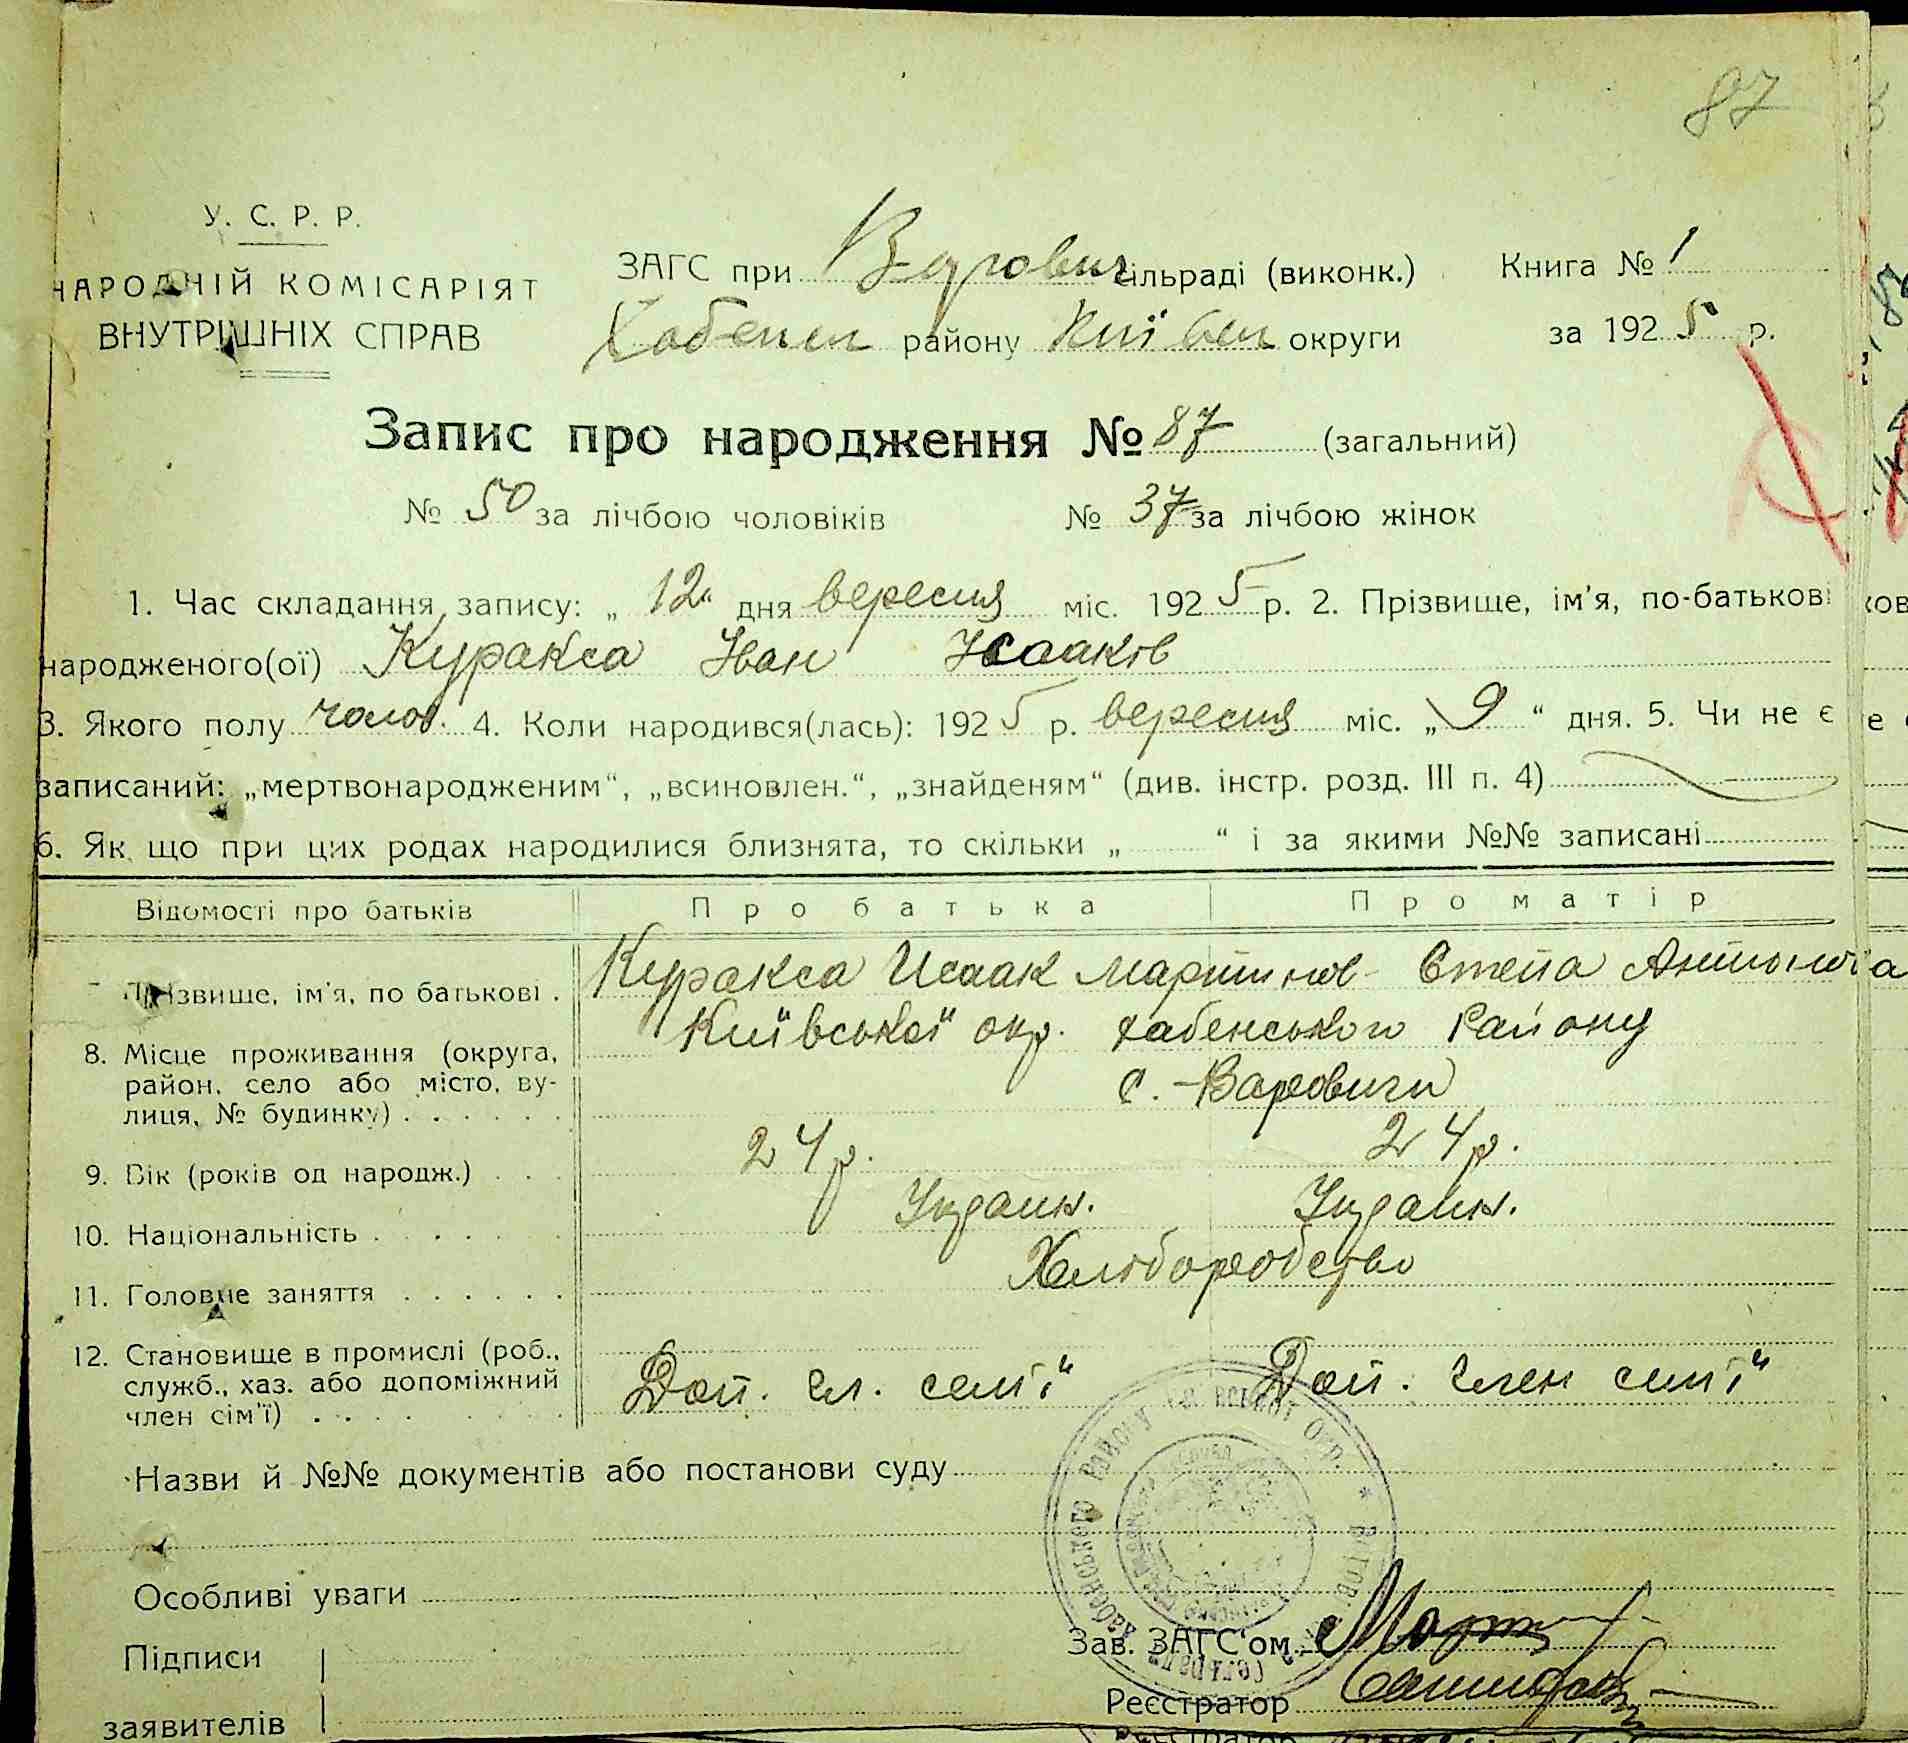 87
У. С. Р. Р.
НАРОДНІЙ КОМІСАРІЯТ
ВНУТРІШНІХ СПРАВ
ЗАГС при Варович сільраді (виконк.)
Хабенськ району Київськ округи
Книга № 1
за 1925 р.
Запис про народження № 87 (загальний)
№ 50 за лічбою чоловіків № 37 за лічбою жінок
1. Час складання запису: „ 12 “ дня вересня міс. 1925 р. 2. Прізвище, ім'я, по-батькові
народженого(ої) Куракса Іван Ісааків
3. Якого полу чолов. 4. Коли народився(лась): 1925 р. вересня міс. „ 9 “ дня. 5. Чи не є
записаний: „мертвонародженим“, „всиновлен.“, „знайденям“ (див. інстр. розд. III п. 4)
6. Як що при цих родах народилися близнята, то скільки „ “ і за якими №№ записані
Відомості про батьків Про батька Про матір
Прізвище, ім'я, по батькові . Куракса Исаак Мартинов Степа Антонова
8. Місце проживання (округа, район, село або місто, вулиця, № будинку) . . . . . . Київської окр. хабенського Району
с. Варовичи
9. Вік (років од народж.) . . . 24 р. 24 р.
10. Національність . . . . . . Украин. Украин.
11. Головне заняття . . . . . . Хлібороробство
12. Становище в промислі (роб., служб., хаз. або допоміжний член сім'ї) . . . Доп. чл. семї Доп. член симї
Назви й №№ документів або постанови суду
Особливі уваги
Підписи
заявителів
Зав. ЗАГС'ом
Реєстратор